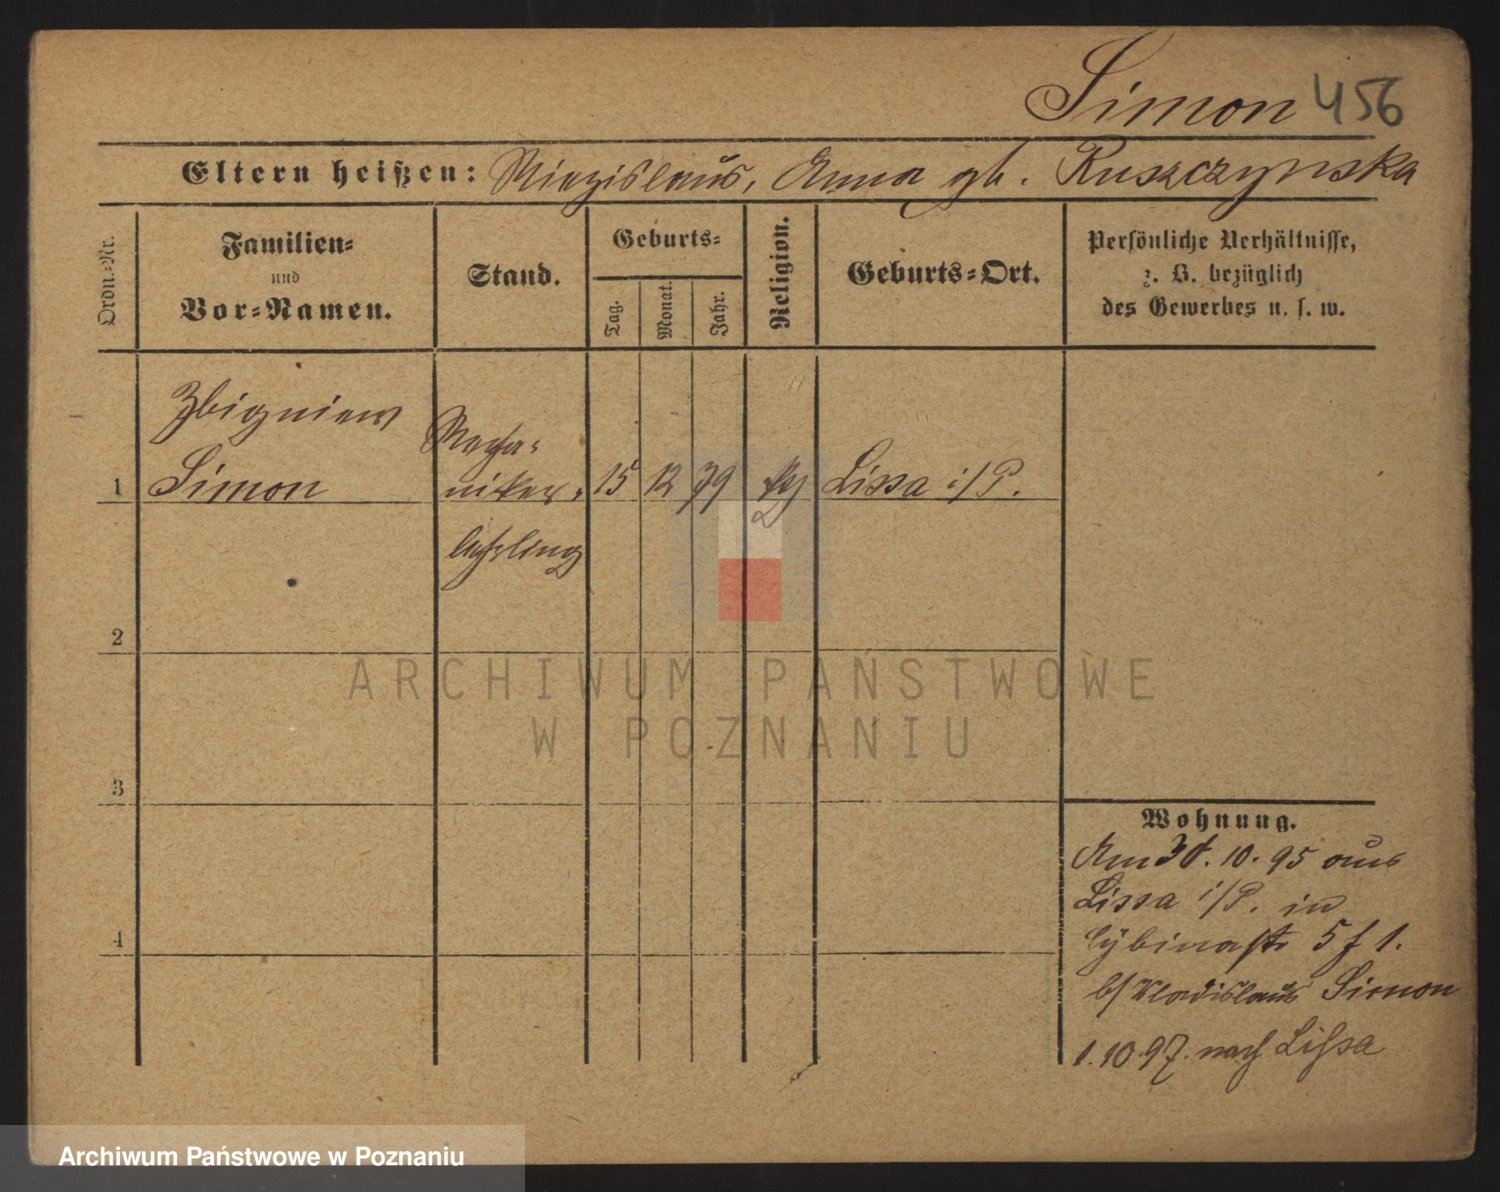 Simon 456
Eltern heißen: Miezislaus, Anna gb. Ruszczynska
Ordn.-Nr.
Familien-
und
Vor-Namen.
Stand.
Geburts-
Tag.
Monat.
Jahr.
Religion.
Geburts-Ort.
Persönliche Verhältnisse,
z. B. bezüglich
des Gewerbes u. s. w.
Zbigniew
Simon
Mecha-
niker-
lehrling
1
15 12 79
Lissa i/P.
2
3
4
Wohnung.
Am . 10. 95 aus
Lissa i/P. in
Cybinastr 5 f 1.
b/ Vladislaus Simon
1.10.97. nach Lissa
ARCHIWUM PAŃSTWOWE
W POZNANIU
Archiwum Państwowe w Poznaniu